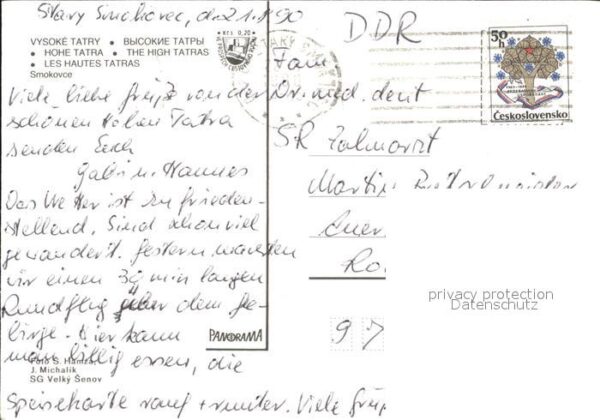 Starý Smokovec, d. 21.8.90
VYSOKÉ TATRY • ВЫСОКИЕ ТАТРЫ
• HOHE TATRA • THE HIGH TATRAS
• LES HAUTES TATRAS
Smokovce
Kčs 0,20
Viele liebe Grüße von der
schönen Hohen Tatra
senden Euch
Gabi u. Hannes
Das Wetter ist zufrieden-
stellend. Sind schon viel
gewandert. Gestern machten
wir einen 30 min langen
Rundflug über dem Ge-
birge. Hier kann
man billig essen, die
Speisekarte rauf + runter. Viele Grüße
Foto S. Hamza,
J. Michalík
SG Velký Šenov
PANORAMA
DDR
50 h
Československo
Fam
Dr. med. dent
SR Zahnarzt
Martin
Auer
Ro
97
privacy protection
Datenschutz